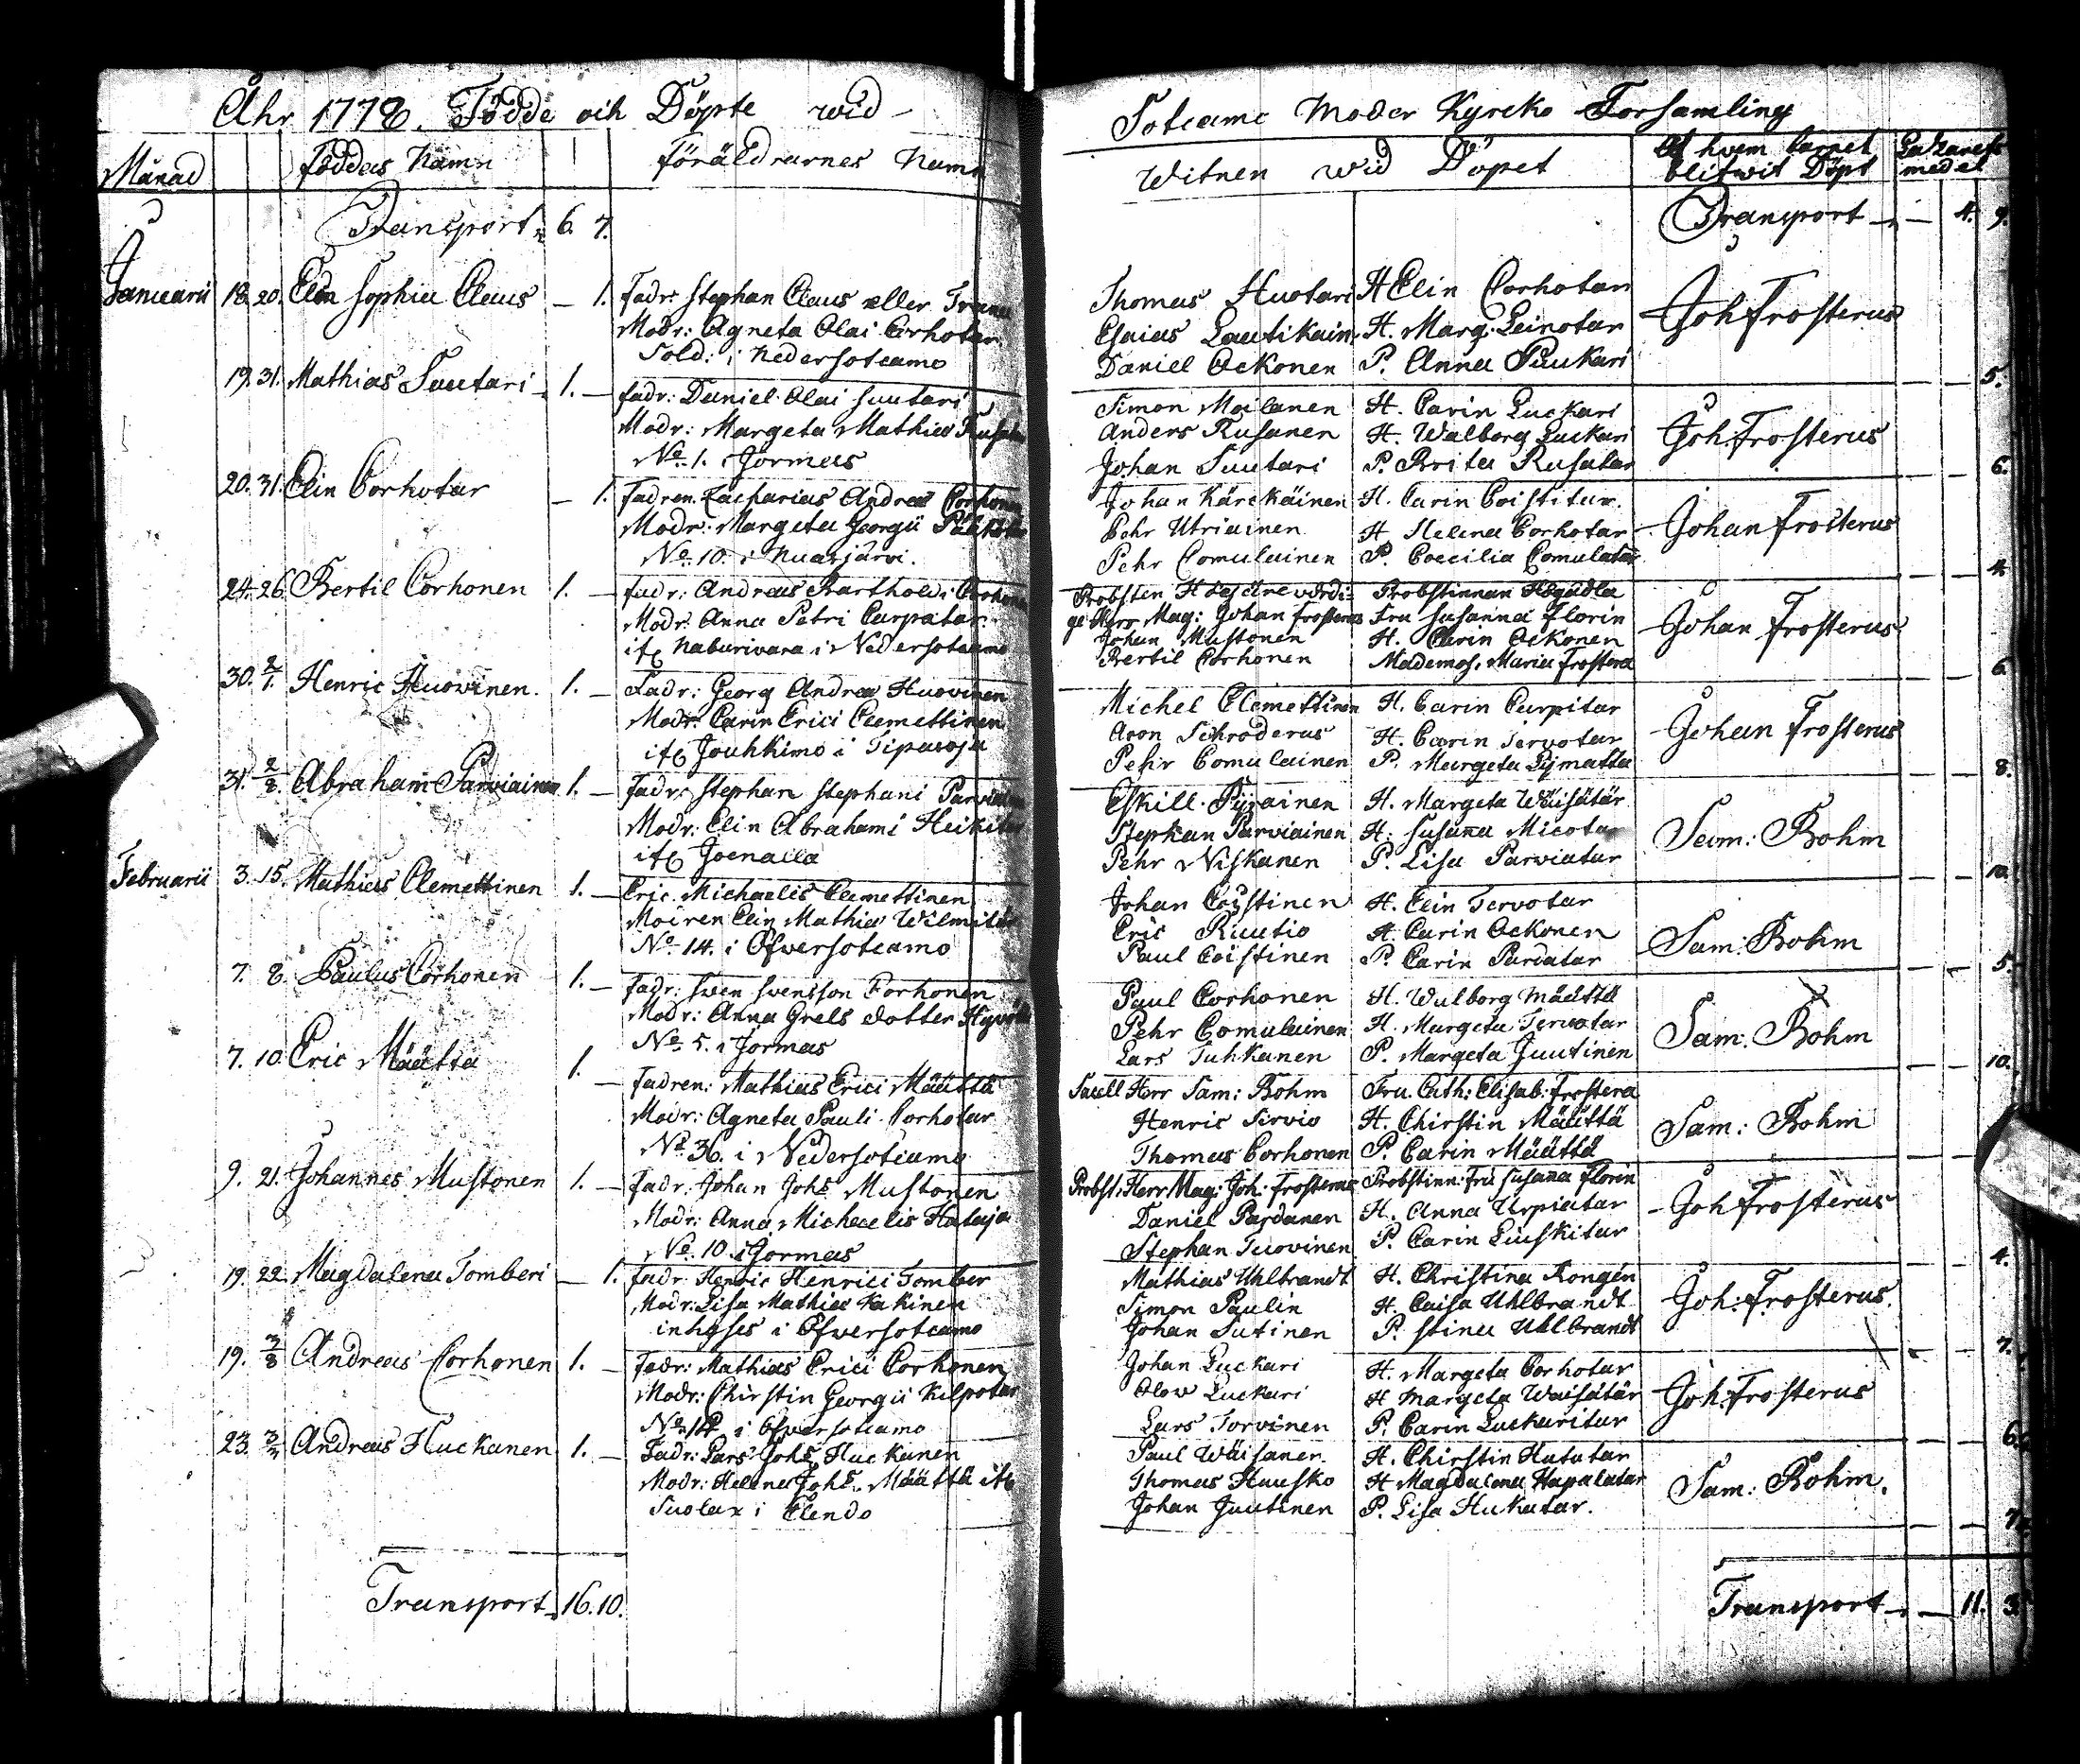 Åhr 1778. Födde och Döpte wid
Månad Föddas Namn Föräldrarnes Namn
Transport 6. 7.
Januarii 18. 20. Elin Sophia Claus — 1. Fadr: Stephan Claus eller
Modr: Agneta Olai Corhotar
Sold: i Nedersotcamo
19. 31. Mathias Suutari 1. — Fadr: Daniel Olai Suutari
Modr: Margeta Mathiæ
No. 1. i Jormas
20. 31. Elin Corhotar — 1. Fadren Zacharias Andreæ Corhonen
Modr: Margeta Georgii
No. 10. i Nuasjärvi.
24. 26. Bertil Corhonen 1. — Fadr: Andreas Bartholdi Corhonen
Modr. Anna Petri Carpatar
ifr. Naburivara i Nedersotcamo
30. 2/1. Henric Huovinen. 1. — Fadr: Georg Andreæ Huovinen
Modr: Carin Erici Clemettinen
ifr. Jouhkimo i Tipasoja
31. 2/8. Abraham Parviainen 1. — Fadr: Stephan Stephani Parviainen
Modr: Elin Abrahami Heikitar
ifr.
Februarii 3. 15. Mathias Clemettinen 1. — Eric Michaelis Clemettinen
Moiren Elin Mathiæ
No. 14. i Öfversotcamo
7. 8. Paulus Corhonen 1. — Fadr: Sven Svensson Corhonen
Modr: Anna Grels dotter
No. 5. i Jormas
7. 10. Eric Määttä 1. — Fadren: Mathias Erici Määttä
Modr: Agneta Pauli Corhotar
No 36. i Nedersotcamo
9. 21. Johannes Mustonen 1. — Fadr: Johan Johs Mustonen
Modr: Anna Michaelis Hataja
No. 10. i Jormas
19. 22. Magdalena Tomberi — 1. Fadr: Henric Henrici Tomber
Modr: Lisa Mathiæ Kakinen
inhyses i Öfversotcamo
19. 3/8 Andreas Corhonen 1. — Fadr: Mathias Erici Corhonen
Modr: Chirstin Georgii Kilpotar
No. i Öfversotcamo
23. Andreas Huckanen 1. — Fadr: Lars Johs Huckanen
Modr: Helena Johs. Määttä ifr.
i Elendo
Transport 16. 10.
Sotcamo Moder Kyrcko Församling
Witnen wid Döpet Af hvem barnet Lazarets
blifwit Döpt medel
Transport — 4. 9.
Thomas Huotari H Elin Corhotar Joh Frosterus
Esaias Lautikain. H. Marg. Leinotar
Daniel Ockonen P. Anna Puukari 5.
Simon Moilanen H. Carin Luckari Joh. Frosterus
Anders Rusanen H. Walborg Luckari
Johan Suutari P. Brita Rusatar 6.
Johan Kärckäinen H. Carin Coistitar. Johan Frosterus
Pehr Utriainen H Helena Corhotar
Pehr Comulainen P. Coecilia Comulatar 4.
Probsten Högährevördi- Probstinnan Högädla
ge Herr Mag: Johan Frosterus Fru Susanna Florin Johan Frosterus
Johan Mustonen H. Carin Ockonen
Bertil Corhonen Mademos. Maria Frostera 6.
Michel Clemettinen H. Carin Carpitar Johan Frosterus
Aron Schroderus H. Carin Tervotar
Pehr Comulainen P. Margeta Lymatta 8.
Eskill Pyyrainen H. Margeta Wäisätär Sam: Bohm
Stephan Parviainen H. Susanna Micotar
Pehr Niskanen P. Lisa Parviatar 10.
Johan Coistinen H. Elin Tervotar Sam: Bohm
Eric Ruutio H. Carin Ockonen
Paul Coistinen P. Carin Pardatar 5.
Paul Corhonen H. Walborg Määttä Sam. Bohm
Pehr Comulainen H. Margeta Tervotar
Lars Tuhkanen P. Margeta Juutinen 10.
Sacell Herr Sam: Bohm Fru. Cath: Elisab: Frostera Sam: Bohm
Henric Sirvio H. Chirstin Määttä
Thomas Corhonen P. Carin Määttä
Probst. Herr Mag: Joh. Frosterus Probstinn: Fru Susana Florin Joh Frosterus
Daniel Pardanen H. Anna Urpiatar
Stephan Tuovinen P. Carin Liuskitar 4.
Mathias Uhlbrandt H. Christina Rongén Joh: Frosterus.
Simon Paulin H. Caisa Uhlbrandt
Johan Sutinen P. Stina Uhlbrandt 7.
Johan Luckari H. Margeta Corhotar Joh. Frosterus
Olov Luckari H Margeta Waisätär
Lars Torvinen P. Carin Luckaritar 6.
Paul Wäisanen H. Chirstin Hututar Sam: Bohm.
Thomas Hausko H Magdalena Hapalatar
Johan Juutinen P. Lisa Hukatar. 7.
Transport — 11. 3.